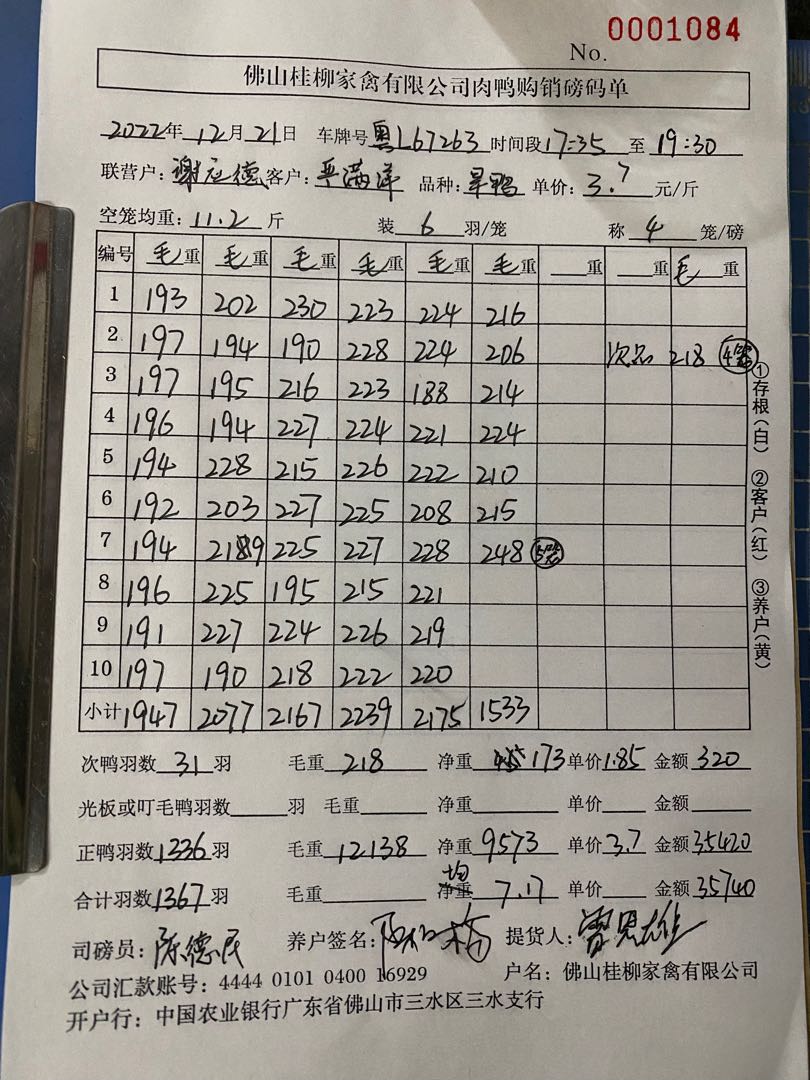 No. 0001084
佛山桂柳家禽有限公司肉鸭购销磅码单
2022年 12月21日 车牌号 粤L67263 时间段 17:35 至 19:30
联营户: 谢应德 客户: 严满洋 品种: 旱鸭 单价: 3.7 元/斤
空笼均重: 11.2 斤 装 6 羽/笼 称 4 笼/磅
编号 毛重 毛重 毛重 毛重 毛重 毛重 重 重 毛重
1 193 202 230 223 224 216
2 197 194 190 228 224 206 次品 218 4笼
3 197 195 216 223 188 214
4 196 194 227 224 221 224
5 194 228 215 226 222 210
6 192 203 227 225 208 215
7 194 219 225 227 228 248 5笼
8 196 225 195 215 221
9 191 227 224 226 219
10 197 190 218 222 220
小计 1947 2077 2167 2239 2175 1533
①存根(白) ②客户(红) ③养户(黄)
次鸭羽数 31 羽 毛重 218 净重 173 单价 1.85 金额 320
光板或叮毛鸭羽数 羽 毛重 净重 单价 金额
正鸭羽数 1336 羽 毛重 12138 净重 9573 单价 3.7 金额 35420
合计羽数 1367 羽 毛重 均重 7.17 单价 金额 35740
司磅员: 陈德民 养户签名: 提货人:
公司汇款账号: 4444 0101 0400 16929 户名: 佛山桂柳家禽有限公司
开户行: 中国农业银行广东省佛山市三水区三水支行